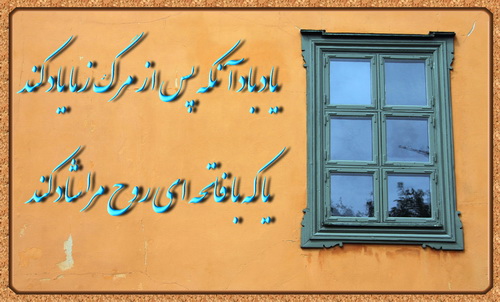 یاد باد آنکه پس از مرگ ز ما یاد کند
یا که با فاتحه ای روح مرا شاد کند